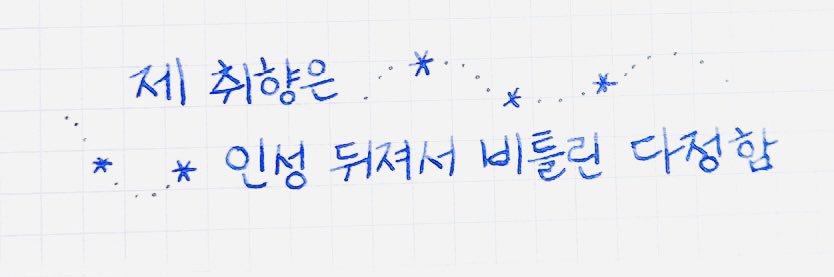 제 취향은
인성 뒤져서 비틀린 다정함